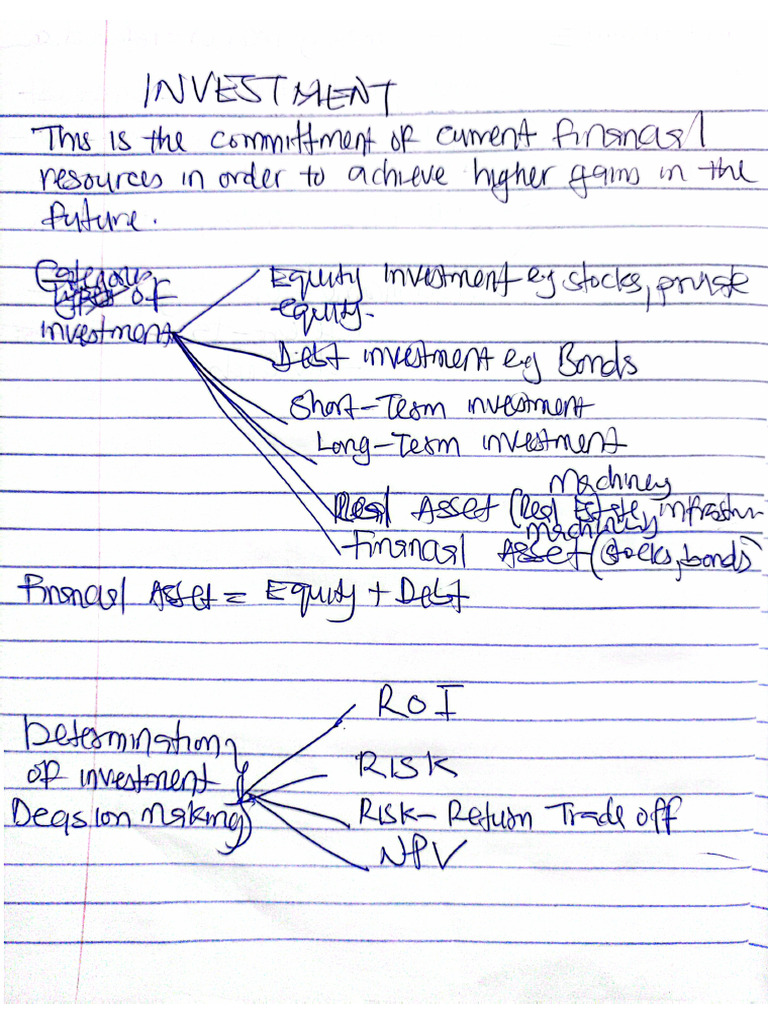 INVESTMENT
This is the committment of current financial
resources in order to achieve higher gains in the
future.
Category
Types of
investment
Equity investment eg stocks, private
equity.
Debt investment e.g Bonds
Short-Term investment
Long-Term investment
Machinery
Real Asset (Real Estate, infrastru
machinery
Financial Asset (stocks, bonds)
Financial Asset = Equity + Debt
ROI
Determination
of investment
Decision making
RISK
Risk-Return Trade off
NPV